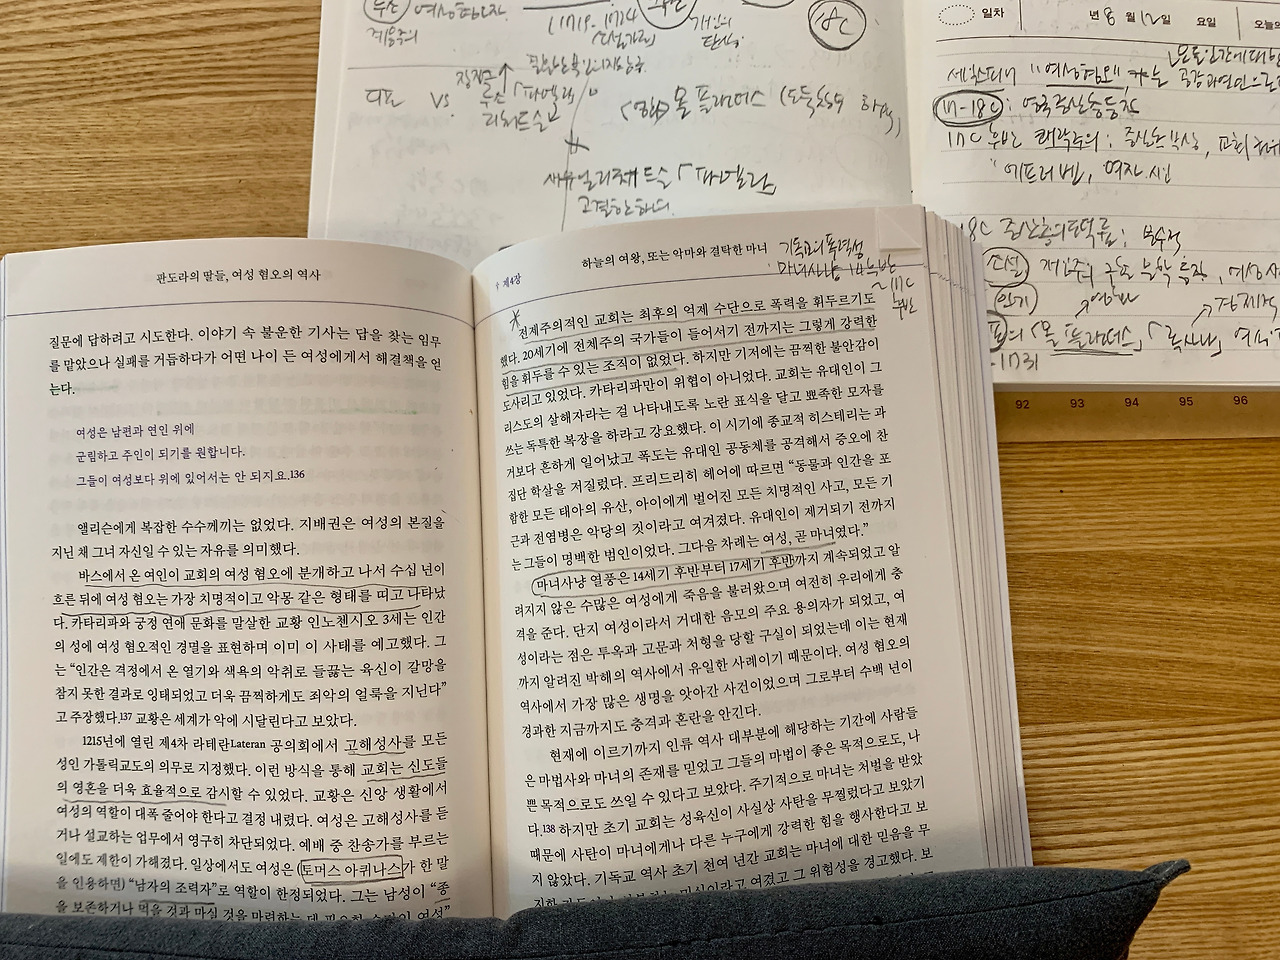 18C
(1719-1724
디포 VS 리처드슨
몰 플라더스
새뮤얼 리처드슨 「파멜라」
고결한 하녀
일차
년 8월 12일 요일
오늘의
"여성혐오"
17-18C : 영국 중산층 등장
17C 후반 쾌락주의 : 중산층 부상, 교회
18C 중산층의 도덕률 :
소설
인기
「몰 플라더스」, 「록사나」
92 93 94 95 96
판도라의 딸들, 여성 혐오의 역사
질문에 답하려고 시도한다. 이야기 속 불운한 기사는 답을 찾는 임무
를 맡았으나 실패를 거듭하다가 어떤 나이 든 여성에게서 해결책을 얻
는다.
여성은 남편과 연인 위에
군림하고 주인이 되기를 원합니다.
그들이 여성보다 위에 있어서는 안 되지요.136
앨리슨에게 복잡한 수수께끼는 없었다. 지배권은 여성의 본질을
지닌 채 그녀 자신일 수 있는 자유를 의미했다.
바스에서 온 여인이 교회의 여성 혐오에 분개하고 나서 수십 년이
흐른 뒤에 여성 혐오는 가장 치명적이고 악몽 같은 형태를 띠고 나타났
다. 카타리파와 궁정 연애 문화를 말살한 교황 인노첸시오 3세는 인간
의 성에 여성 혐오적인 경멸을 표현하며 이미 이 사태를 예고했다. 그
는 “인간은 격정에서 온 열기와 색욕의 악취로 들끓는 육신이 갈망을
참지 못한 결과로 잉태되었고 더욱 끔찍하게도 죄악의 얼룩을 지닌다”
고 주장했다.137 교황은 세계가 악에 시달린다고 보았다.
1215년에 열린 제4차 라테란Lateran 공의회에서 고해성사를 모든
성인 가톨릭교도의 의무로 지정했다. 이런 방식을 통해 교회는 신도들
의 영혼을 더욱 효율적으로 감시할 수 있었다. 교황은 신앙 생활에서
여성의 역할이 대폭 줄어야 한다고 결정 내렸다. 여성은 고해성사를 듣
거나 설교하는 업무에서 영구히 차단되었다. 예배 중 찬송가를 부르는
일에도 제한이 가해졌다. 일상에서도 여성은 (토머스 아퀴나스가 한 말
을 인용하면) “남자의 조력자”로 역할이 한정되었다. 그는 남성이 “종
을 보존하거나 먹을 것과 마실 것을 마련하는 데 필요한
제4장 하늘의 여왕, 또는 악마와 결탁한 마녀
기독교의 폭력성
: 마녀사냥 14후반
~17C
후반
전제주의적인 교회는 최후의 억제 수단으로 폭력을 휘두르기도
했다. 20세기에 전체주의 국가들이 들어서기 전까지는 그렇게 강력한
힘을 휘두를 수 있는 조직이 없었다. 하지만 기저에는 끔찍한 불안감이
도사리고 있었다. 카타리파만이 위협이 아니었다. 교회는 유대인이 그
리스도의 살해자라는 걸 나타내도록 노란 표식을 달고 뾰족한 모자를
쓰는 독특한 복장을 하라고 강요했다. 이 시기에 종교적 히스테리는 과
거보다 흔하게 일어났고 폭도는 유대인 공동체를 공격해서 증오에 찬
집단 학살을 저질렀다. 프리드리히 헤어에 따르면 “동물과 인간을 포
함한 모든 태아의 유산, 아이에게 벌어진 모든 치명적인 사고, 모든 기
근과 전염병은 악당의 짓이라고 여겨졌다. 유대인이 제거되기 전까지
는 그들이 명백한 범인이었다. 그다음 차례는 여성, 곧 마녀였다.”
마녀사냥 열풍은 14세기 후반부터 17세기 후반까지 계속되었고 알
려지지 않은 수많은 여성에게 죽음을 불러왔으며 여전히 우리에게 충
격을 준다. 단지 여성이라서 거대한 음모의 주요 용의자가 되었고, 여
성이라는 점은 투옥과 고문과 처형을 당할 구실이 되었는데 이는 현재
까지 알려진 박해의 역사에서 유일한 사례이기 때문이다. 여성 혐오의
역사에서 가장 많은 생명을 앗아간 사건이었으며 그로부터 수백 년이
경과한 지금까지도 충격과 혼란을 안긴다.
현재에 이르기까지 인류 역사 대부분에 해당하는 기간에 사람들
은 마법사와 마녀의 존재를 믿었고 그들의 마법이 좋은 목적으로도, 나
쁜 목적으로도 쓰일 수 있다고 보았다. 주기적으로 마녀는 처벌을 받았
다.138 하지만 초기 교회는 성육신이 사실상 사탄을 무찔렀다고 보았기
때문에 사탄이 마녀에게나 다른 누구에게 강력한 힘을 행사한다고 보
지 않았다. 기독교 역사 초기 천여 년간 교회는 마녀에 대한 믿음을 무
미신이라고 여겼고 그 위험성을 경고했다. 보